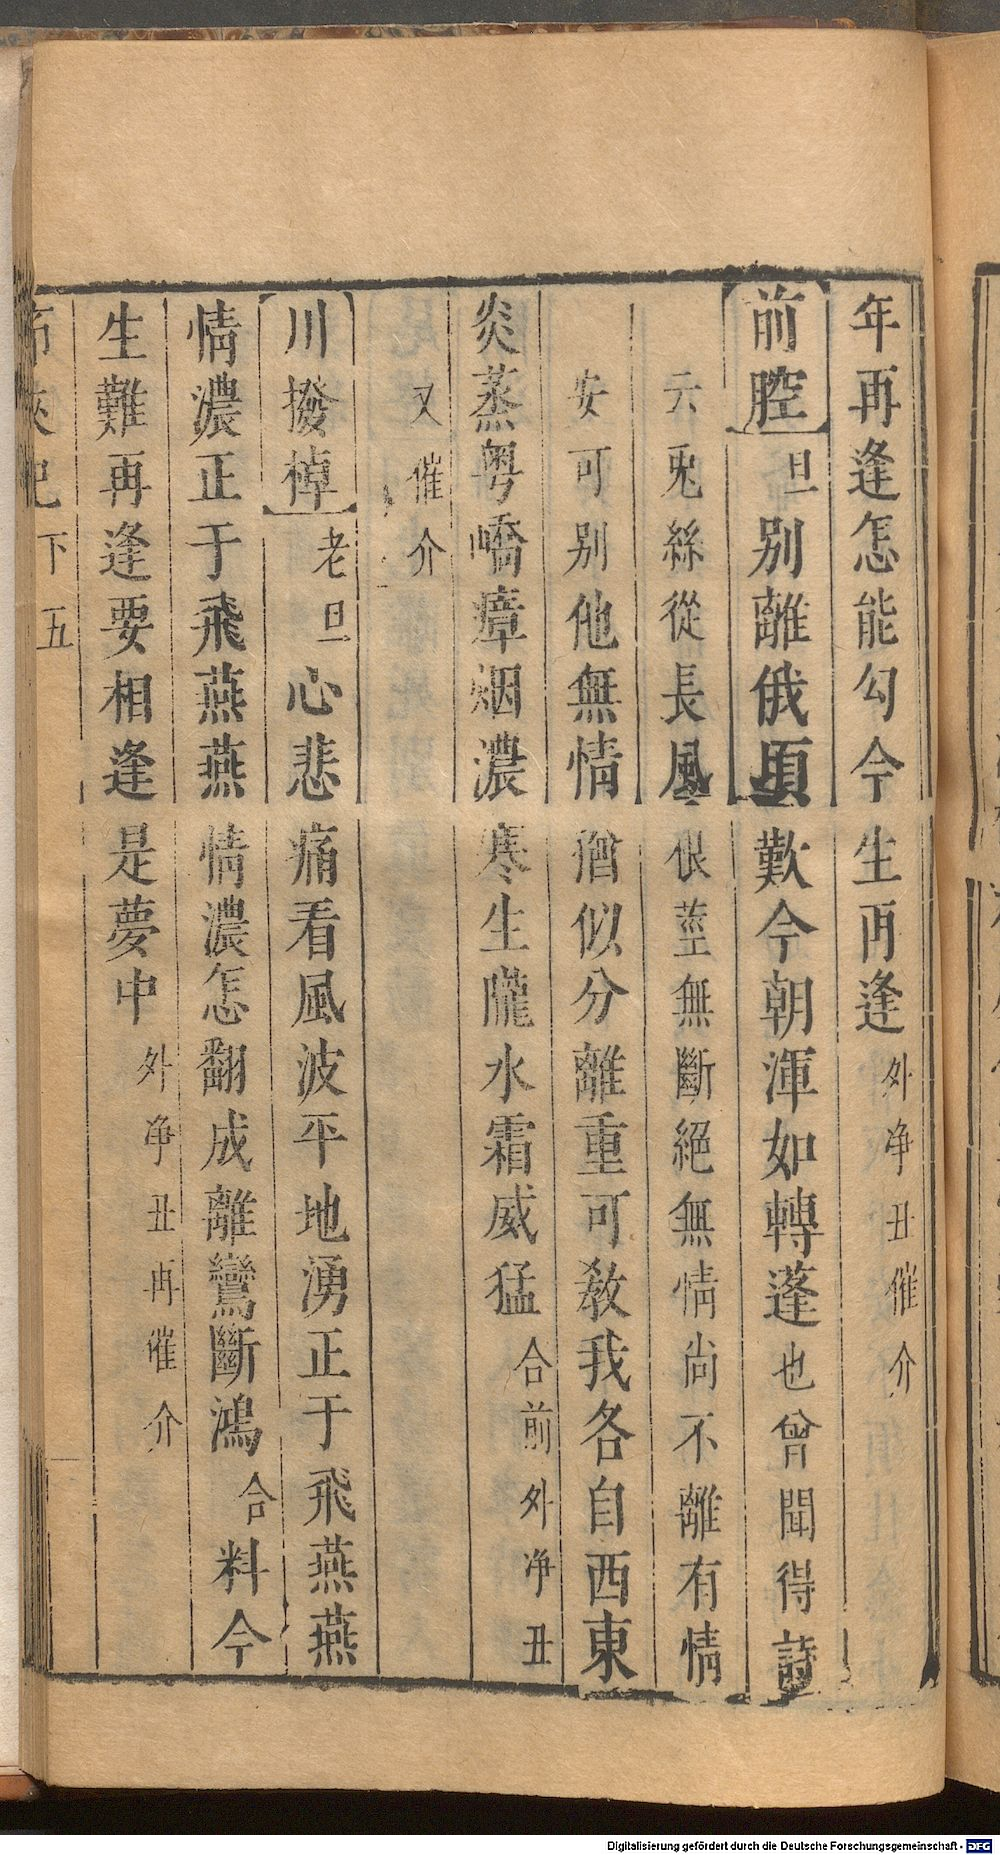 年再逢怎能勾今生再逢外净丑催介
前腔旦别離俄頃歎今朝渾如轉蓬也曾聞得詩
云兎絲從長風根莖無斷絕無情尚不離有情
安可别他無情猶似分離重可教我各自西東
炎蒸粤嶠瘴烟濃寒生隴水霜威猛合前外净丑
又催介
川撥棹老旦心悲痛看風波平地湧正于飛燕燕
情濃正于飛燕燕情濃怎翻成離鸞斷鴻合料今
生難再逢要相逢是夢中外净丑再催介
記下五
Digitalisierung gefördert durch die Deutsche Forschungsgemeinschaft - DFG